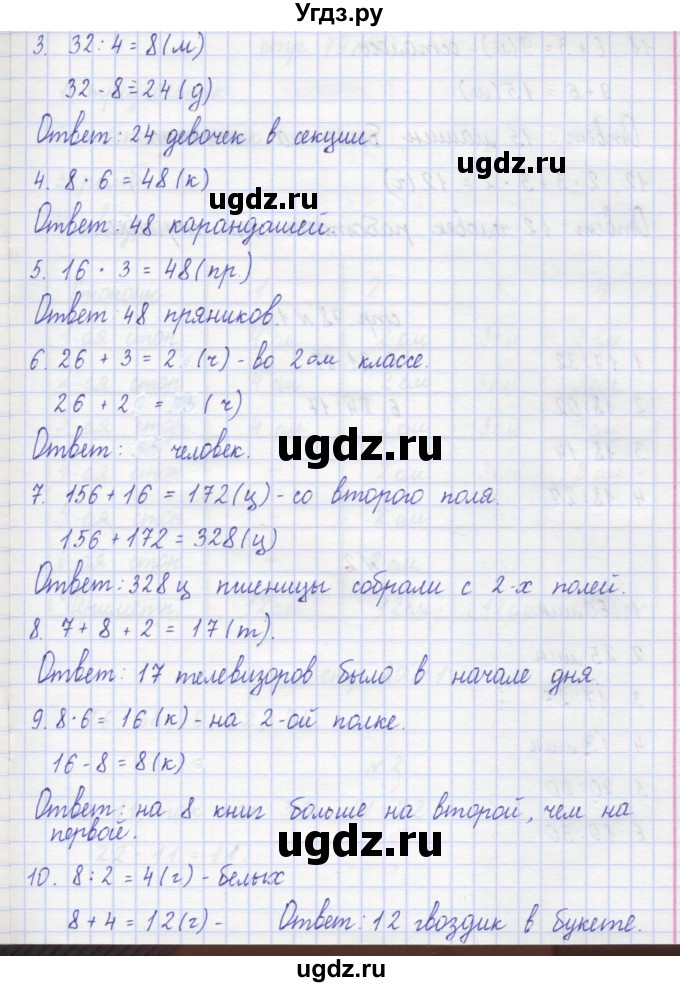 Угдз.ру
3. 32 : 4 = 8 (м)
32 - 8 = 24 (д)
Ответ: 24 девочек в секции
ugdz.ru ugdz.ru
4. 8 · 6 = 48 (к)
Ответ: 48 карандашей.
5. 16 · 3 = 48 (пр.)
Ответ: 48 пряников.
ugdz.ru
6. 26 + 3 = 2 (ч) - во 2ом классе.
26 + 2 = (ч)
ugdz.ru
Ответ: человек.
7. 156 + 16 = 172 (ц) - со второго поля.
156 + 172 = 328 (ц)
ugdz.ru
Ответ: 328 ц пшеницы собрали с 2-х полей.
8. 7 + 8 + 2 = 17 (т).
Ответ: 17 телевизоров было в начале дня.
ugdz.ru
9. 8 · 6 = 16 (к) - на 2-ой полке.
16 - 8 = 8 (к)
Ответ: на 8 книг больше на второй, чем на
первой.
ugdz.ru
10. 8 : 2 = 4 (г) - белых
8 + 4 = 12 (г) - Ответ: 12 гвоздик в букете.
ugdz.ru